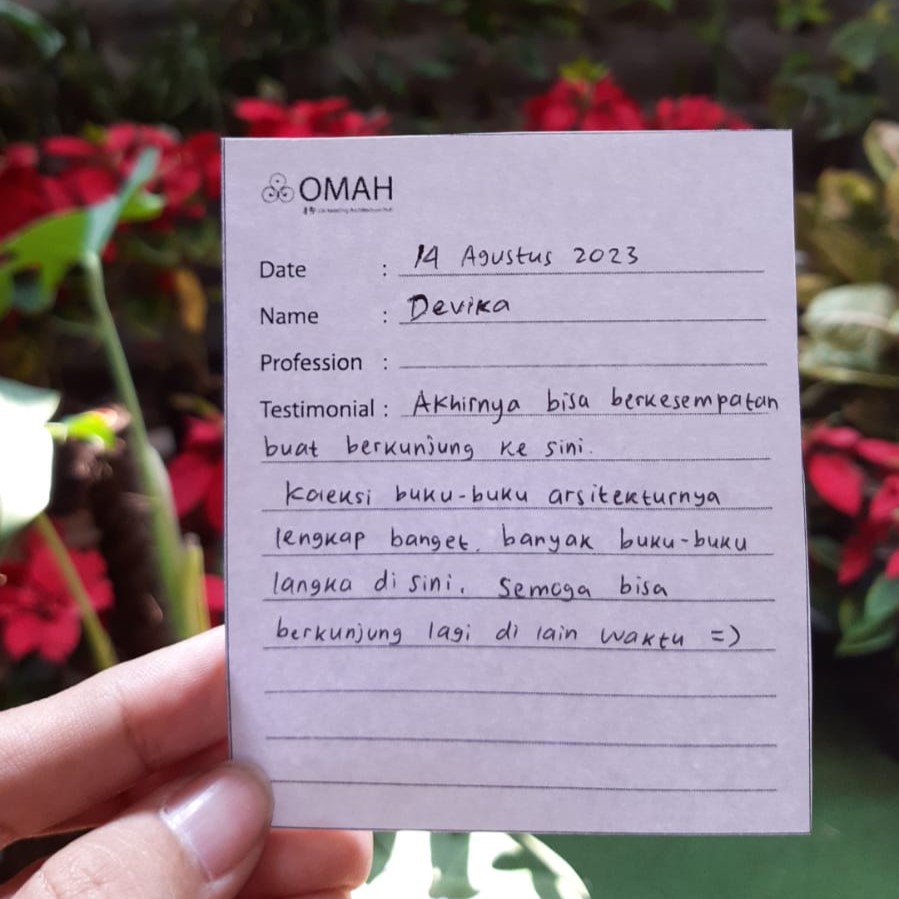 OMAH
Date : 14 Agustus 2023
Name : Devika
Profession :
Testimonial : Akhirnya bisa berkesempatan
buat berkunjung ke sini.
Koleksi buku-buku arsitekturnya
lengkap banget, banyak buku-buku
langka di sini. Semoga bisa
berkunjung lagi di lain waktu =)